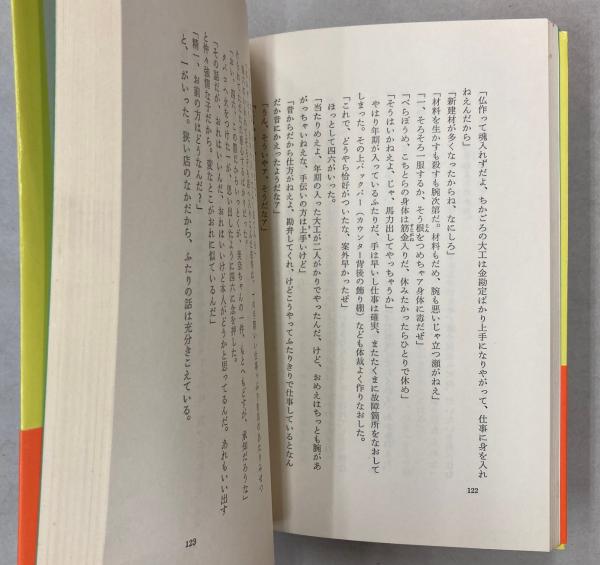 「仏作って魂入れずだよ、ちかごろの大工は金勘定ばかり上手になりやがって、仕事に身を入れ
ねえんだから」
「新建材が多くなったからね、なにしろ」
「材料を生かすも殺すも腕次第だ。材料もだめ、腕も悪いじゃ立つ瀬がねえ」
「一、そろそろ一服するか、そう根をつめちゃァ身体に毒だぜ」
「べらぼうめ、こちとらの身体は筋金入りだ、休みたかったらひとりで休め」
「そうはいかねえよ、じゃ、馬力出してやっちゃうか」
やはり年期が入っているふたりだ、手は早いし仕事は確実、またたくまに故障箇所をなおして
しまった。その上バックバー（カウンター背後の飾り棚）なども体裁よく作りなおした。
「これで、どうやら恰好がついたな、案外早かったぜ」
ほっとして四六がいった。
「当たりめえよ、年期の入った大工が二人がかりでやったんだ、けど、おめえはちっとも腕があ
がっちゃいねえな、手伝いの方は上手いけど」
「昔からだから仕方がねえよ、勘弁してくれ、けどこうやってふたりきりで仕事しているとなん
だか昔にかえったようだなァ」
「うん、そういやァ、そうだなァ」
122
タバコへ火をつけた一が、思い出したように四六に念を押した。
「その話だが、おれはいいんだ。おれはいいけど本人がどうかと思ってるんだ。あれもいい出す
と仲々強情な子だから。変なとこがおれに似ているんだ」
「精一、お前の方はどうなんだ？」
と、一がいった。狭い店のなかだから、ふたりの話は充分きこえている。
123